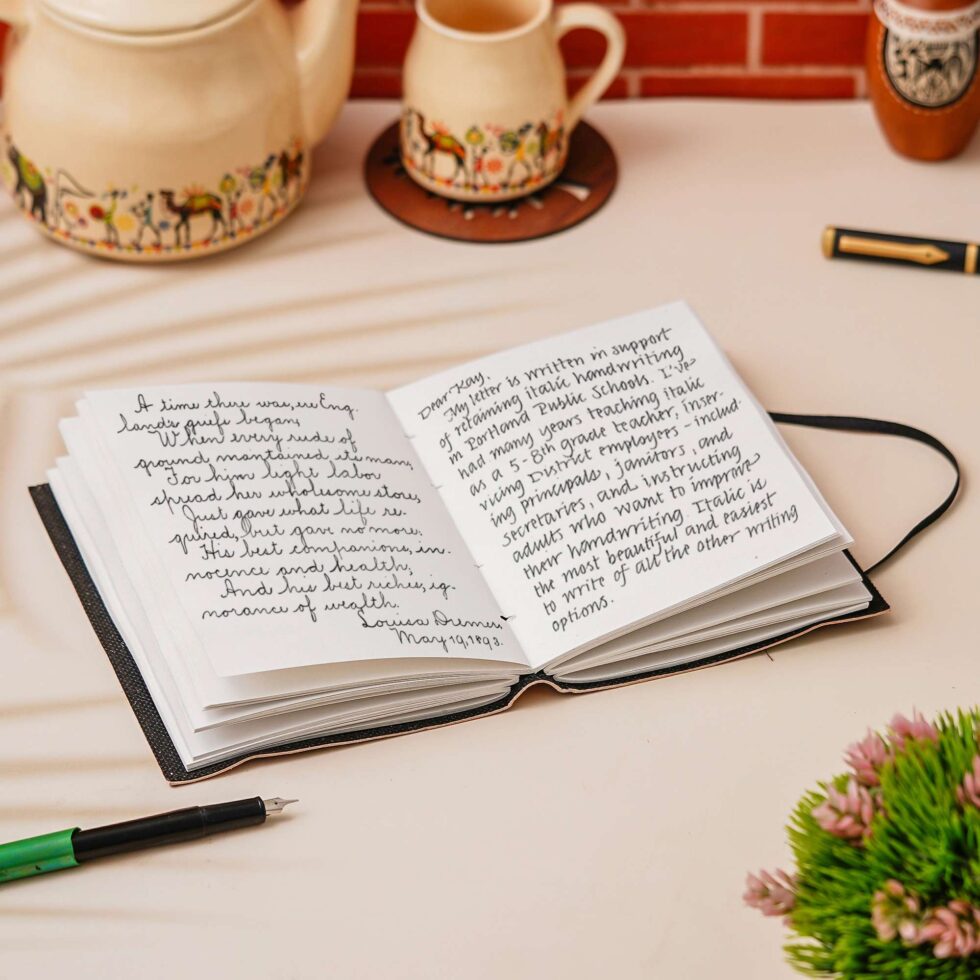 A time there was, ere Eng-
lands griefs began,
When every rude of
ground maintained its man,
For him light labor
spread her wholesome store,
Just gave what life re-
quired, but gave no more.
His best companions, in-
nocence and health,
And his best riches, ig-
norance of wealth.
Louisa
May 19, 1893.
Dear Kay,
My letter is written in support
of retaining italic handwriting
in Portland Public Schools. I've
had many years teaching italic
as a 5-8th grade teacher, inser-
vicing District employers - includ-
ing principals, janitors, and
secretaries, and instructing
adults who want to improve
their handwriting. Italic is
the most beautiful and easiest
to write of all the other writing
options.